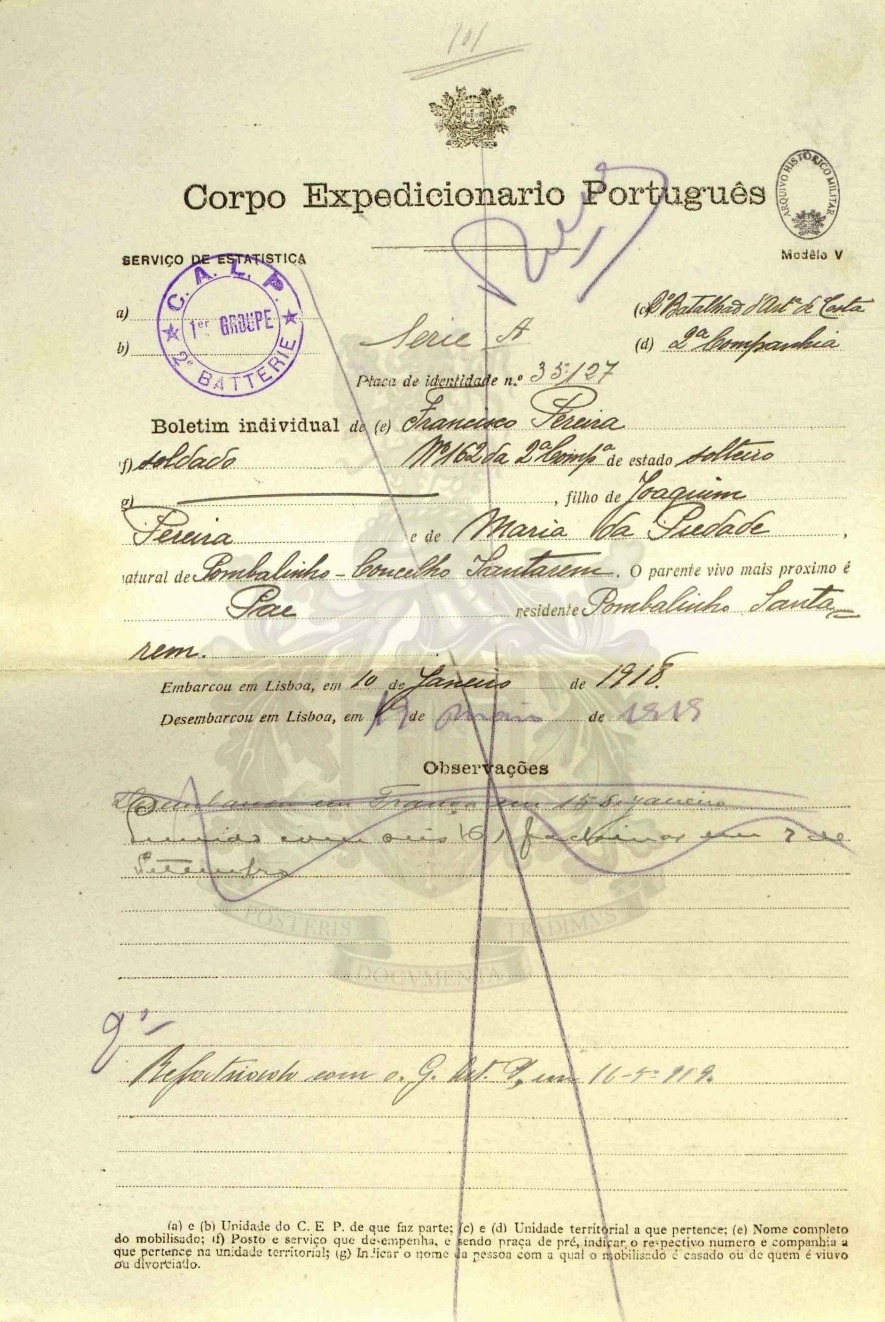 101
Corpo Expedicionario Português
ARQUIVO HISTÓRICO MILITAR
SERVIÇO DE ESTATISTICA
Modêlo V
C. A. L. P.
1er GROUPE
2e BATTERIE
a)
(c) 2º Batalhão d'Artª de Costa
b)
Serie A
(d) 2ª Companhia
Placa de identidade n.º 35127
Boletim individual de (e) Francisco Pereira
f) soldado Nº 162 da 2ª Compª de estado solteiro
g) , filho de Joaquim
Pereira e de Maria da Piedade ,
natural de Pombalinho - Concelho Santarem . O parente vivo mais proximo é
Pae residente Pombalinho Santa
rem.
Embarcou em Lisboa, em 10 de Janeiro de 1918.
Desembarcou em Lisboa, em de maio de 1919
Observações
Desembarcou em França em 15 de janeiro
Punido com seis (6) fachinas em 7 de
Setembro
POSTERIS TRADIMVS
DOCVMENTA
Repatriado com o G. em 16-5-919.
(a) e (b) Unidade do C. E P. de que faz parte; (c) e (d) Unidade territorial a que pertence; (e) Nome completo
do mobilisado; (f) Posto e serviço que desempenha, e sendo praça de pré, indicar o respectivo numero e companhia a
que pertence na unidade territorial; (g) Indicar o nome da pessoa com a qual o mobilisado é casado ou de quem é viuvo
ou divorciado.